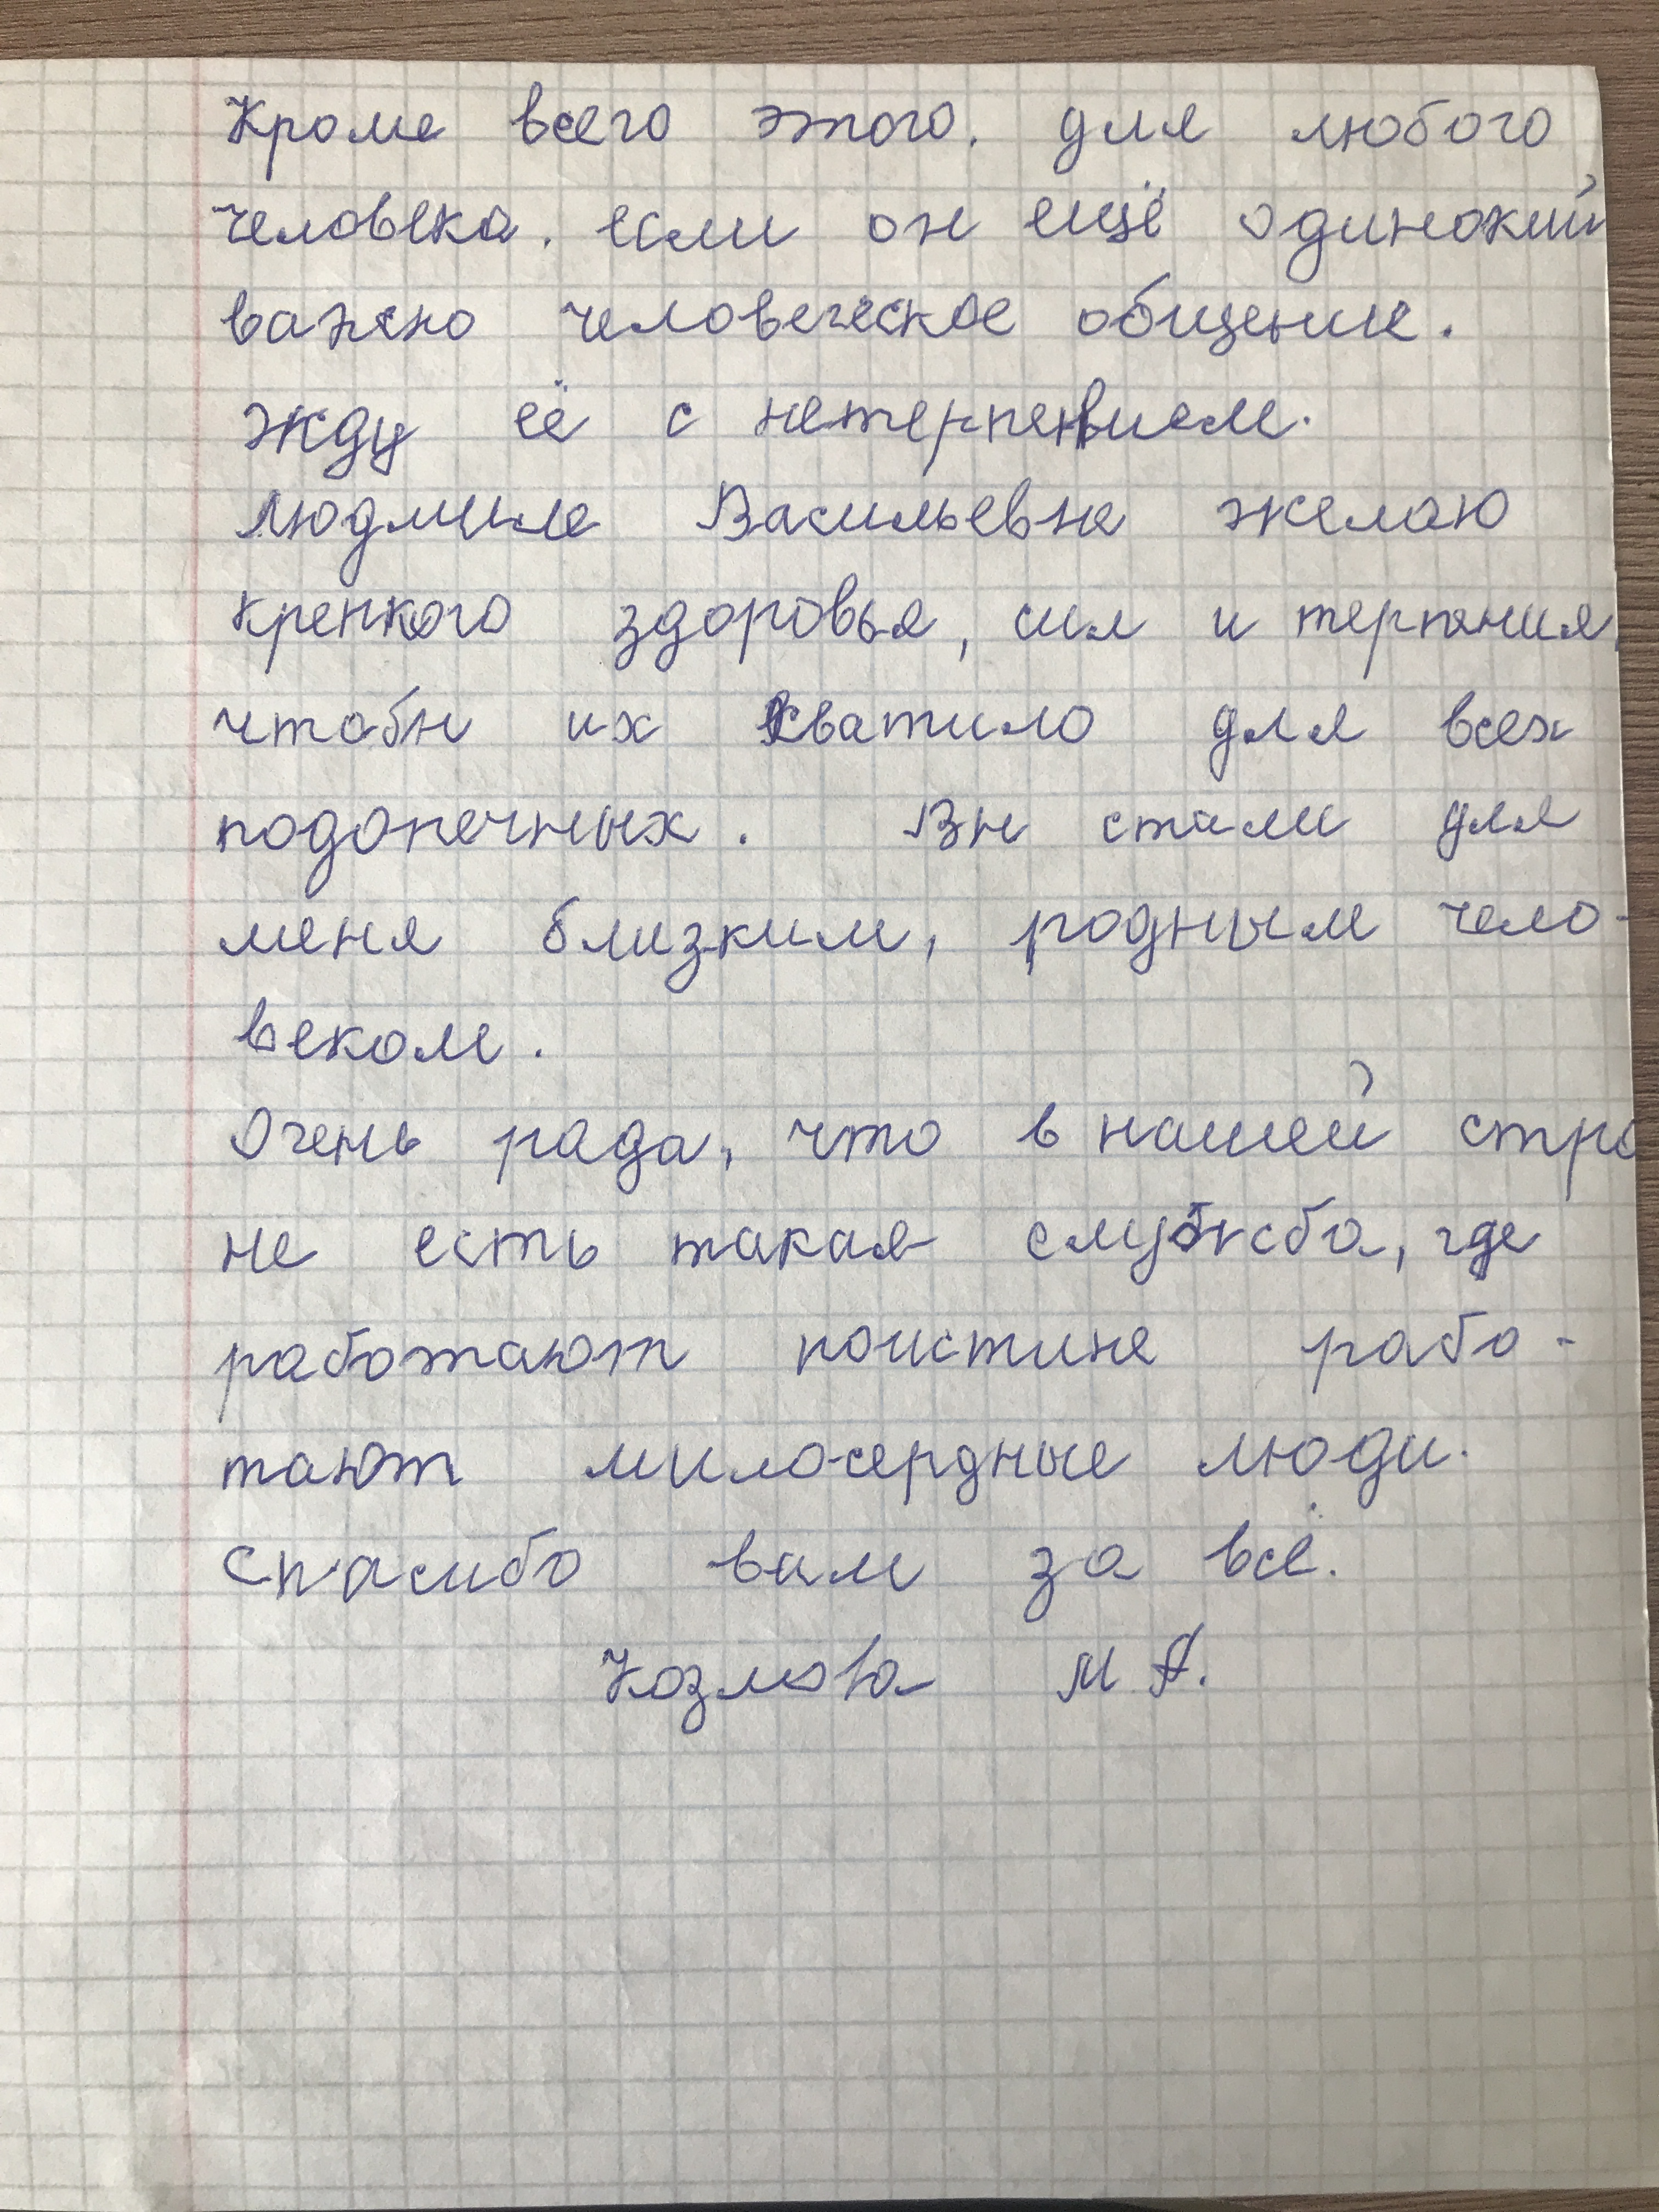 Кроме всего этого, для любого
человека, если он ещё одинокий
важно человеческое общение.
Жду её с нетерпением.
Людмиле Васильевне желаю
крепкого здоровья, сил и терпения,
чтобы их хватило для всех
подопечных. Вы стали для
меня близким, родным чело-
веком.
Очень рада, что в нашей стра
не есть такая служба, где
работают поистине рабо-
тают милосердные люди.
Спасибо вам за всё.
Козлова М А.